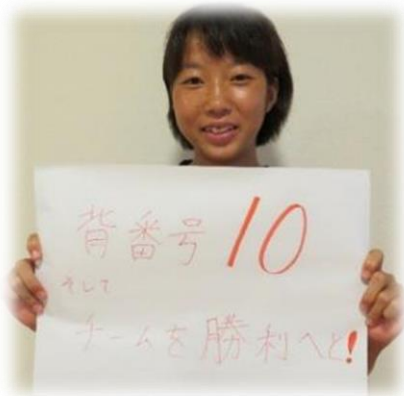 背番号10
そして
チームを勝利へと!